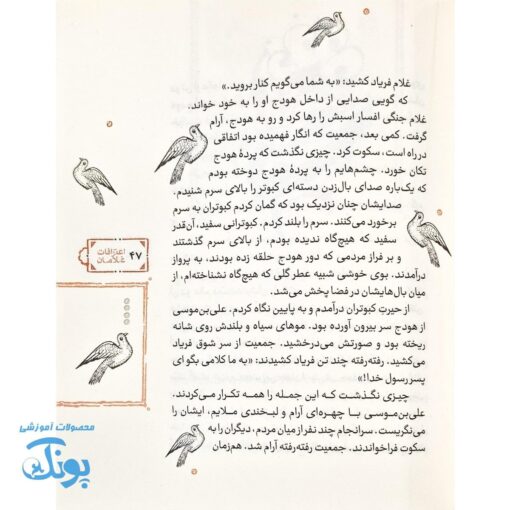 غلام فریاد کشید: «به شما می‌گویم کنار بروید.»
که گویی صدایی از داخل هودج او را به خود خواند.
غلام جنگی افسار اسبش را رها کرد و رو به هودج، آرام
گرفت. کمی بعد، جمعیت که انگار فهمیده بود اتفاقی
در راه است، سکوت کرد. چیزی نگذشت که پردهٔ هودج
تکان خورد. چشم‌هایم را به پردهٔ هودج دوخته بودم
که یک‌باره صدای بال‌زدن دسته‌ای کبوتر را بالای سرم شنیدم.
صدایشان چنان نزدیک بود که گمان کردم کبوتران به سرم
برخورد می‌کنند. سرم را بلند کردم. کبوترانی سفید، آن‌قدر
سفید که هیچ‌گاه ندیده بودم، از بالای سرم گذشتند
و بر فراز مردمی که دور هودج حلقه زده بودند، به پرواز
درآمدند. بوی خوشی شبیه عطر گلی که هیچ‌گاه نشناخته‌ام، از
میان بال‌هایشان در فضا پخش می‌شد.
از حیرتِ کبوتران درآمدم و به پایین نگاه کردم، علی‌بن‌موسی
از هودج سر بیرون آورده بود. موهای سیاه و بلندش روی شانه
ریخته بود و صورتش می‌درخشید. جمعیت از سر شوق فریاد
می‌کشید. رفته‌رفته چند تن فریاد کشیدند: «به ما کلامی بگو ای
پسر رسول خدا!»
چیزی نگذشت که این جمله را همه تکرار می‌کردند.
علی‌بن‌موسی با چهره‌ای آرام و لبخندی ملایم، ایشان را
می‌نگریست. سرانجام چند نفر از میان مردم، دیگران را به
سکوت فراخواندند. جمعیت رفته‌رفته آرام شد. هم‌زمان
۴۷
اعترافات
غلامان
محصولات آموزشی
پونک